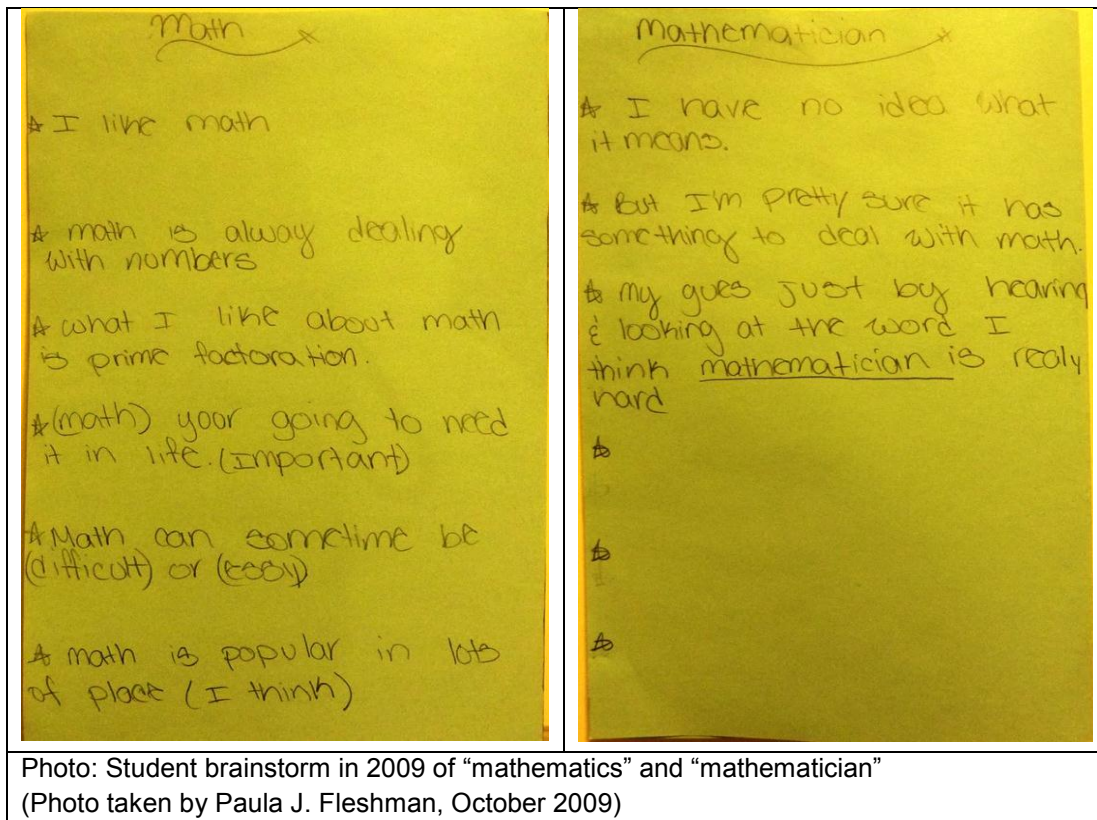 Math
☆ I like math
☆ math is alway dealing
with numbers
☆ what I like about math
is prime factoration.
☆ (math) your going to need
it in life. (Important)
☆ Math can sometime be
(difficult) or (easy)
☆ math is popular in lots
of place (I think)
Mathematician
☆ I have no idea what
it means.
☆ But I'm pretty sure it has
something to deal with math.
☆ my gues just by hearing
& looking at the word I
think mathematician is realy
hard
☆
☆
☆
Photo: Student brainstorm in 2009 of “mathematics” and “mathematician”
(Photo taken by Paula J. Fleshman, October 2009)